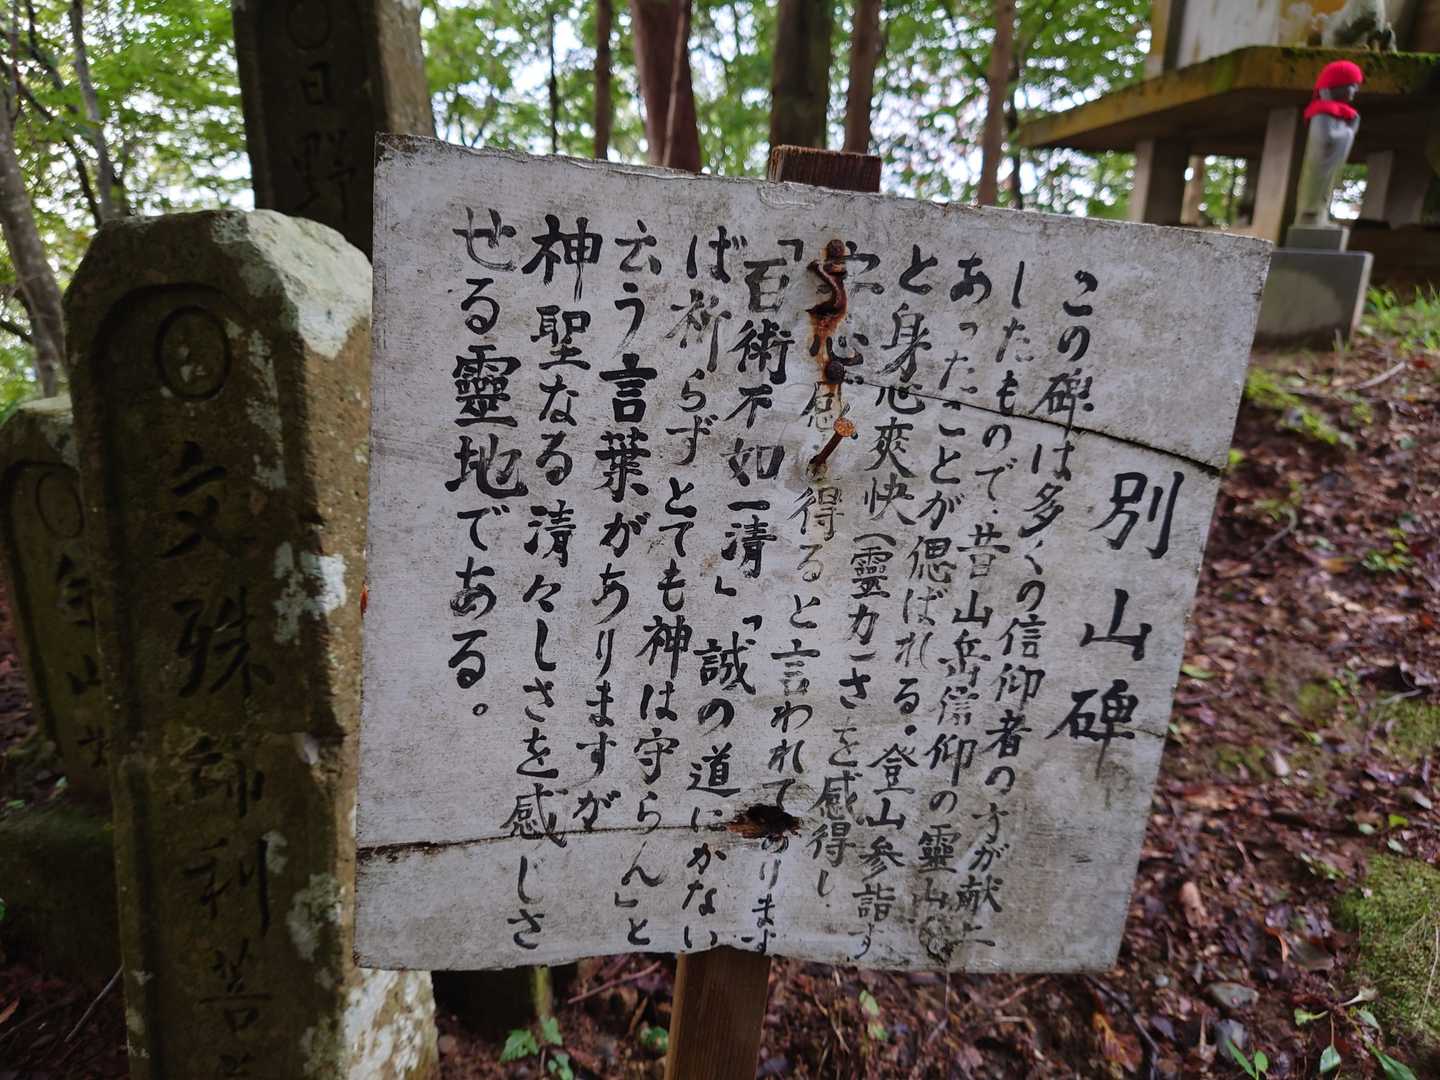 別山碑
この碑は多くの信仰者の方が献上
したもので、昔山岳信仰の霊山で
あったことが偲ばれる。登山参詣す
と身心爽快(靈力)さを感得し、
安心感を得ると言われてあります
「百術不如一清」「誠の道にかない
ば祈らずとても神は守らん」と
云う言葉がありますが
神聖なる清々しさを感じさ
せる靈地である。
文殊師利菩
日野